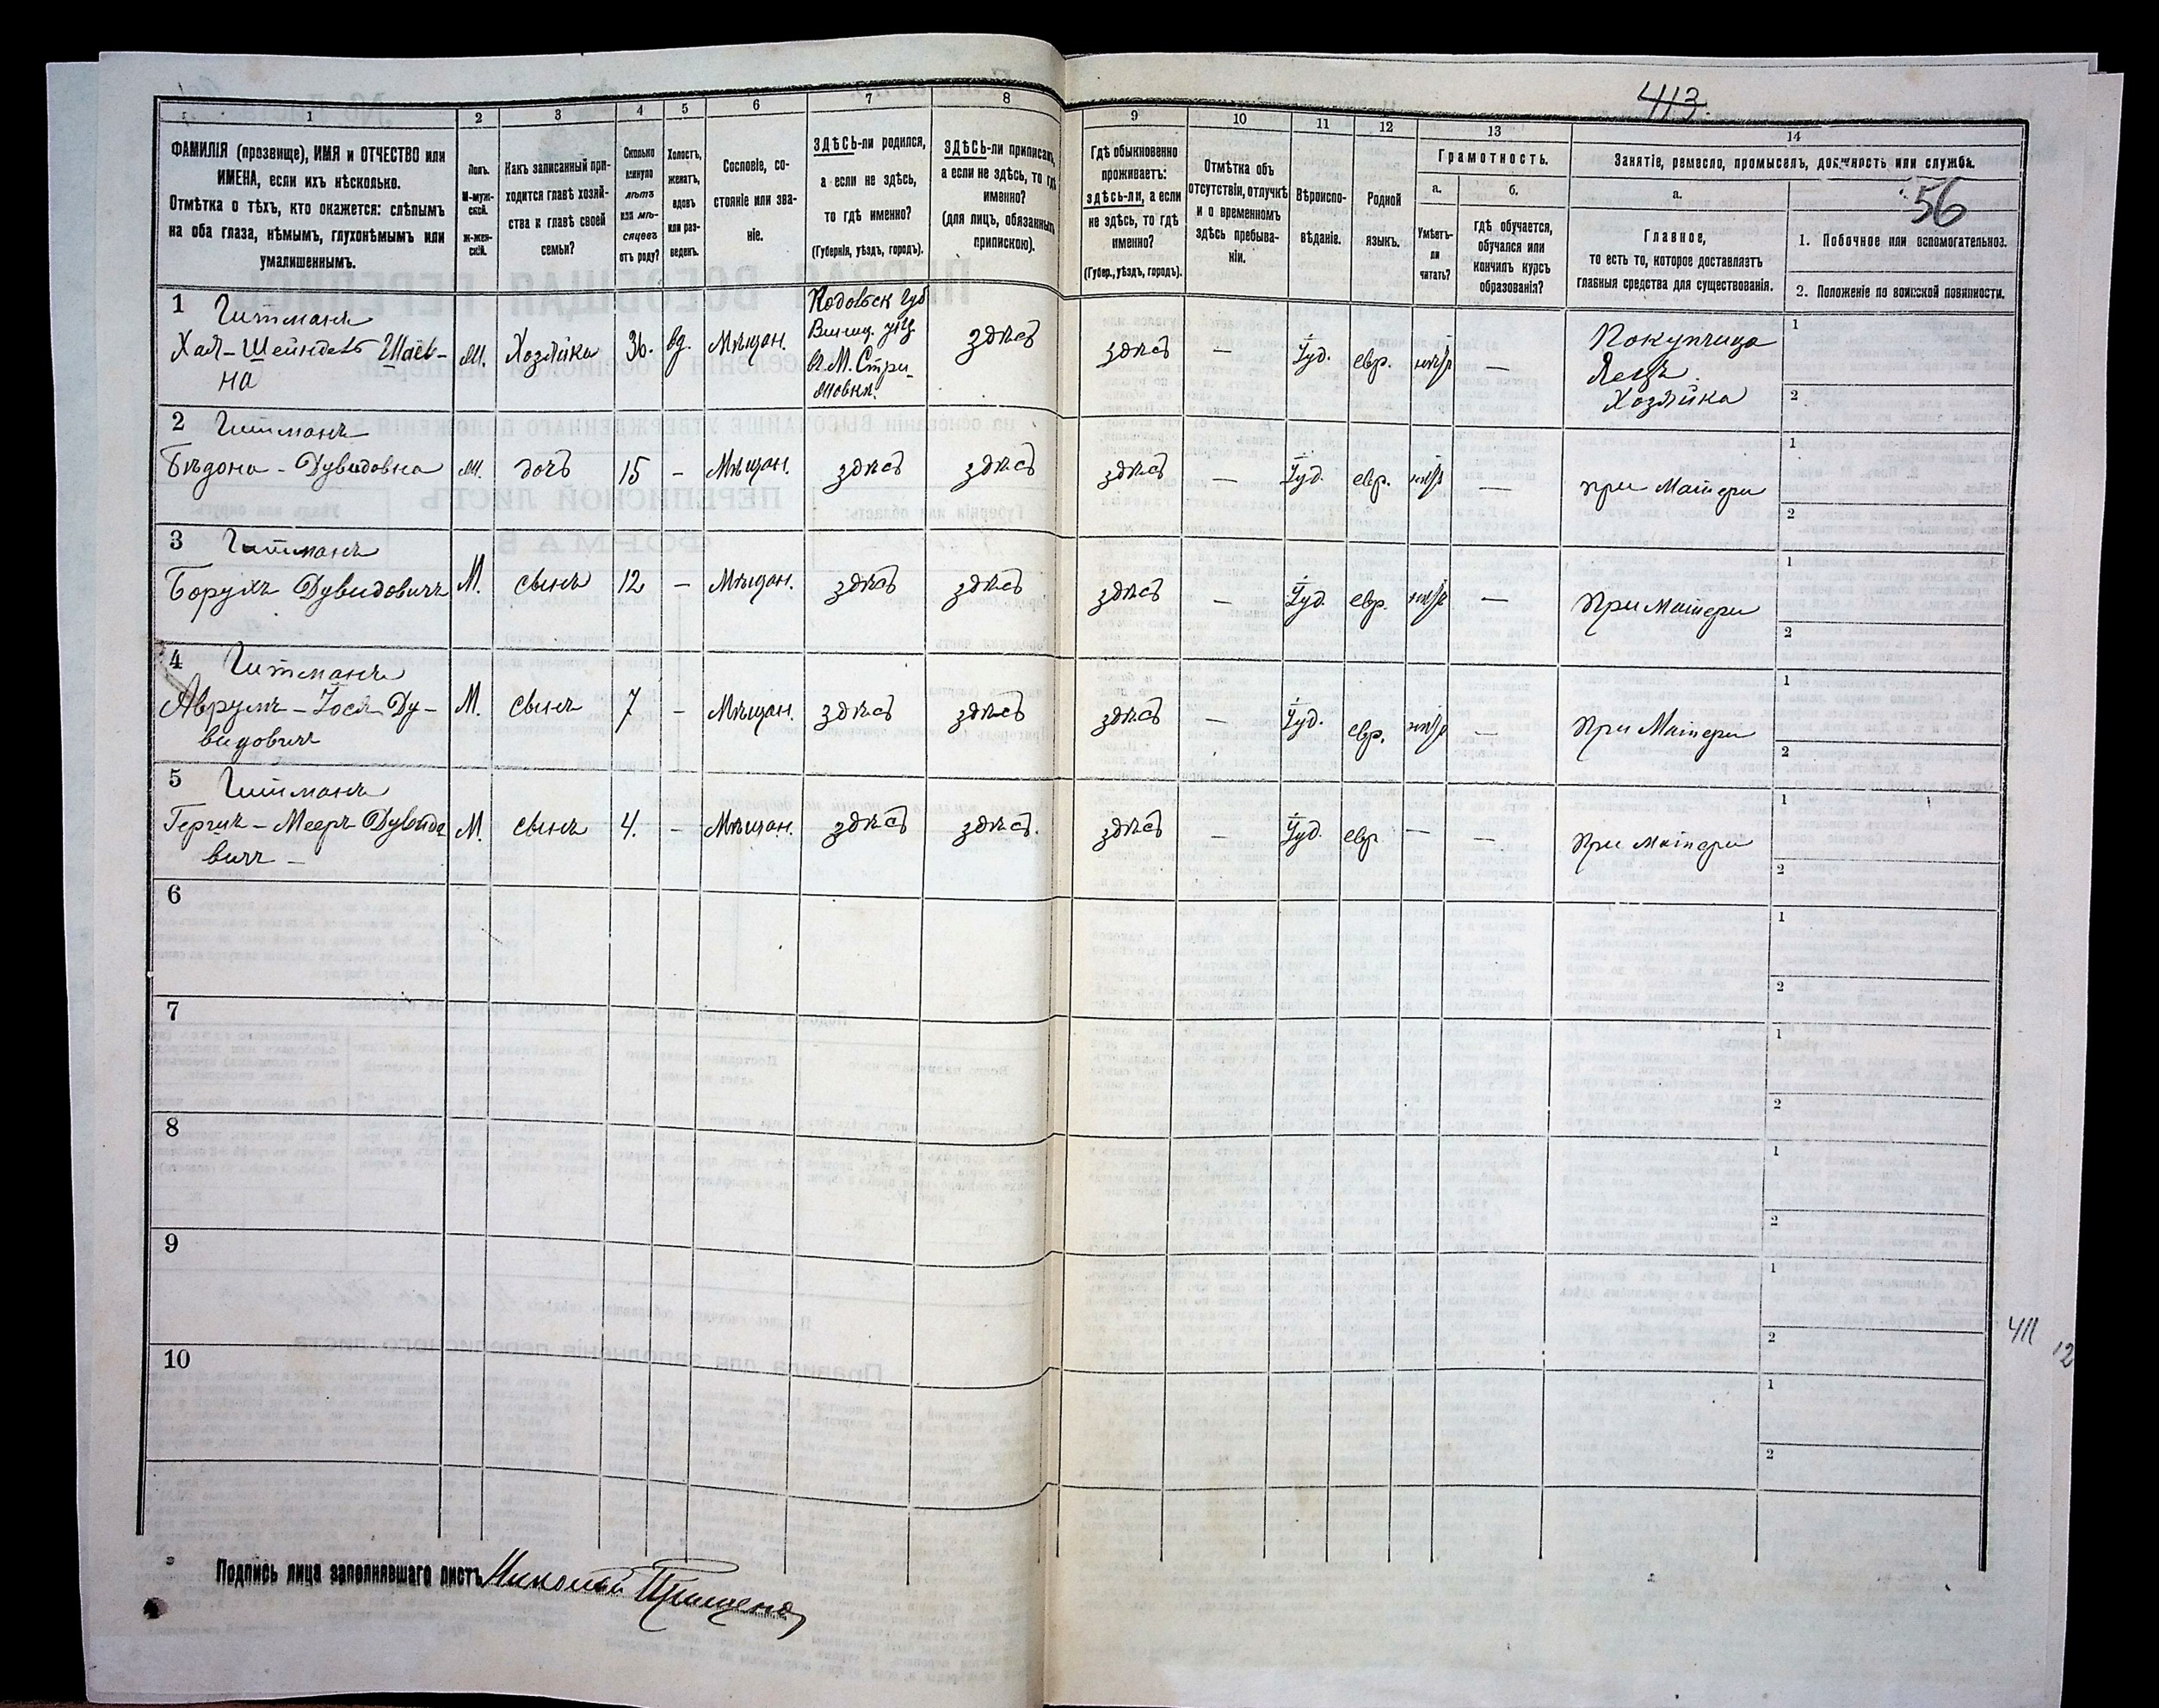 413.
56
1 2 3 4 5 6 7 8 9 10 11 12 13 14
ФАМИЛІЯ (прозвище), ИМЯ и ОТЧЕСТВО или
ИМЕНА, если ихъ нѣсколько.
Отмѣтка о тѣхъ, кто окажется: слѣпымъ
на оба глаза, нѣмымъ, глухонѣмымъ или
умалишеннымъ.
Полъ.
М-муж-
ской.
Ж-жен-
скій.
Какъ записанный при-
ходится главѣ хозяй-
ства и главѣ своей
семьи?
Сколько
минуло
лѣтъ
или мѣ-
сяцевъ
отъ роду?
Холостъ,
женатъ,
вдовъ
или раз-
веденъ.
Сословіе, со-
стояніе или зва-
ніе.
ЗДѢСЬ-ли родился,
а если не здѣсь,
то гдѣ именно?
(Губернія, уѣздъ, городъ).
ЗДѢСЬ-ли приписанъ,
а если не здѣсь, то гдѣ
именно?
(для лицъ, обязанныхъ
припискою).
Гдѣ обыкновенно
проживаетъ:
здѣсь-ли, а если
не здѣсь, то гдѣ
именно?
(Губер., уѣздъ, городъ).
Отмѣтка объ
отсутствіи, отлучкѣ
и о временномъ
здѣсь пребыва-
ніи.
Вѣроиспо-
вѣданіе.
Родной
языкъ.
Грамотность.
а.
Умѣетъ-
ли
читать?
б.
гдѣ обучается,
обучался или
кончилъ курсъ
образованія?
Занятіе, ремесло, промыселъ, должность или служба.
а.
Главное,
то есть то, которое доставляетъ
главныя средства для существованія.
1. Побочное или вспомогательное.
2. Положеніе по воинской повинности.
1 Гитманъ
Хая-Шейндель Шаев-
на
М. Хозяйка 36. вд. Мѣщан.
Подольск губ
Винниц. уѣз.
в М. Стри-
жовки.
здѣсь здѣсь — Іуд. евр. нѣтъ —
Покупчица
Яецъ.
Хозяйка
1
2
2 Гитманъ
- Дувидовна М. дочь 15 - Мѣщан. здѣсь здѣсь здѣсь — Іуд. евр. нѣтъ — при Матери
1
2
3 Гитманъ
Борухъ Дувидовичъ М. сынъ 12 - Мѣщан. здѣсь здѣсь здѣсь — Іуд. евр. нѣтъ — при Матери
1
2
4 Гитманъ
Аврумъ-Іосъ Ду-
видовичъ
М. сынъ 7 - Мѣщан. здѣсь здѣсь здѣсь — Іуд. евр. нѣтъ — при Матери
1
2
5 Гитманъ
Гершъ-Мееръ Дувидо
вичъ -
М. сынъ 4. - Мѣщан. здѣсь здѣсь. здѣсь — Іуд. евр — — при матери
1
2
6
1
2
7
1
2
8
1
2
9
1
2
10
1
2
411
12
Подпись лица заполнявшаго листъ Николай